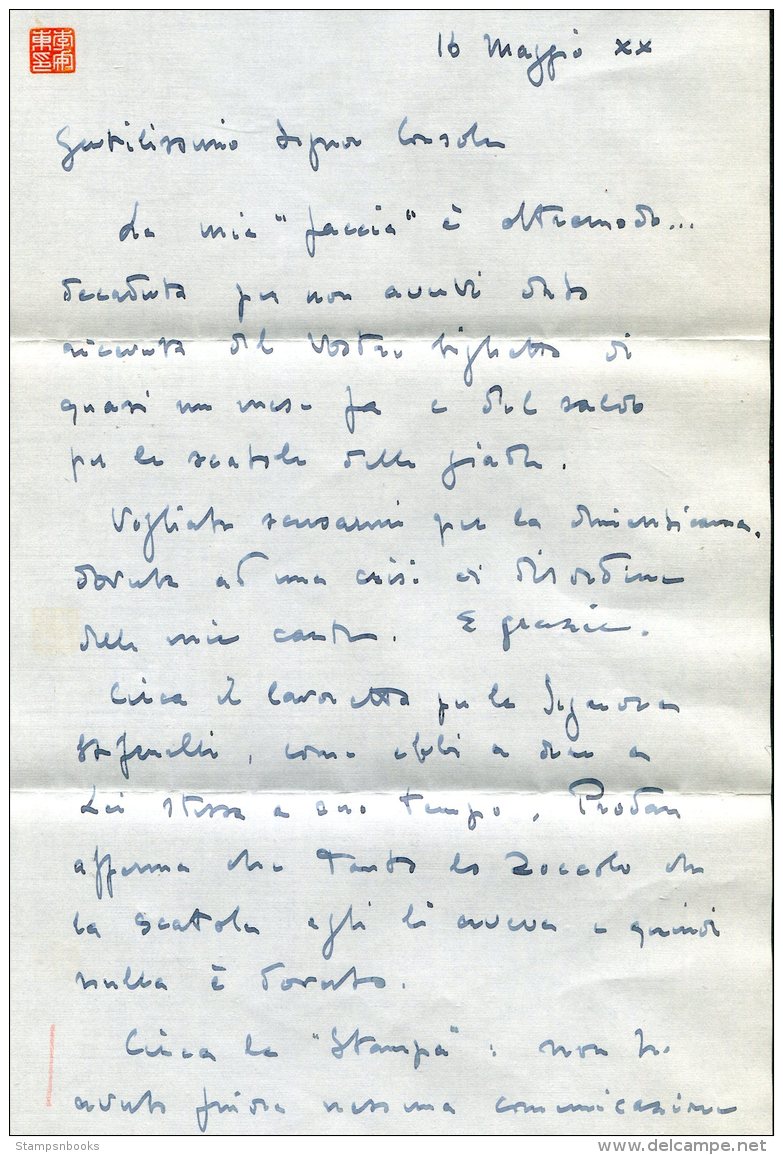 16 Maggio xx
Gentilissimo Signor Console
La mia "faccia" è oltremodo...
decaduta per non avervi dato
ricevuta del Vostro biglietto di
quasi un mese fa e del saldo
per le scatole delle giade.
Vogliate scusarmi per la dimenticanza,
dovuta ad una crisi di disordine
delle mie carte. E grazie.
Circa il lavoretto per la Signora
, come ebbi a dire a
Lei stessa a suo tempo, Prodan
afferma che tanto lo zoccolo che
la scatola egli li aveva e quindi
nulla è dovuto.
Circa la "Stampa": non ho
avuto finora nessuna comunicazione
Stampsnbooks
www.delcampe.net